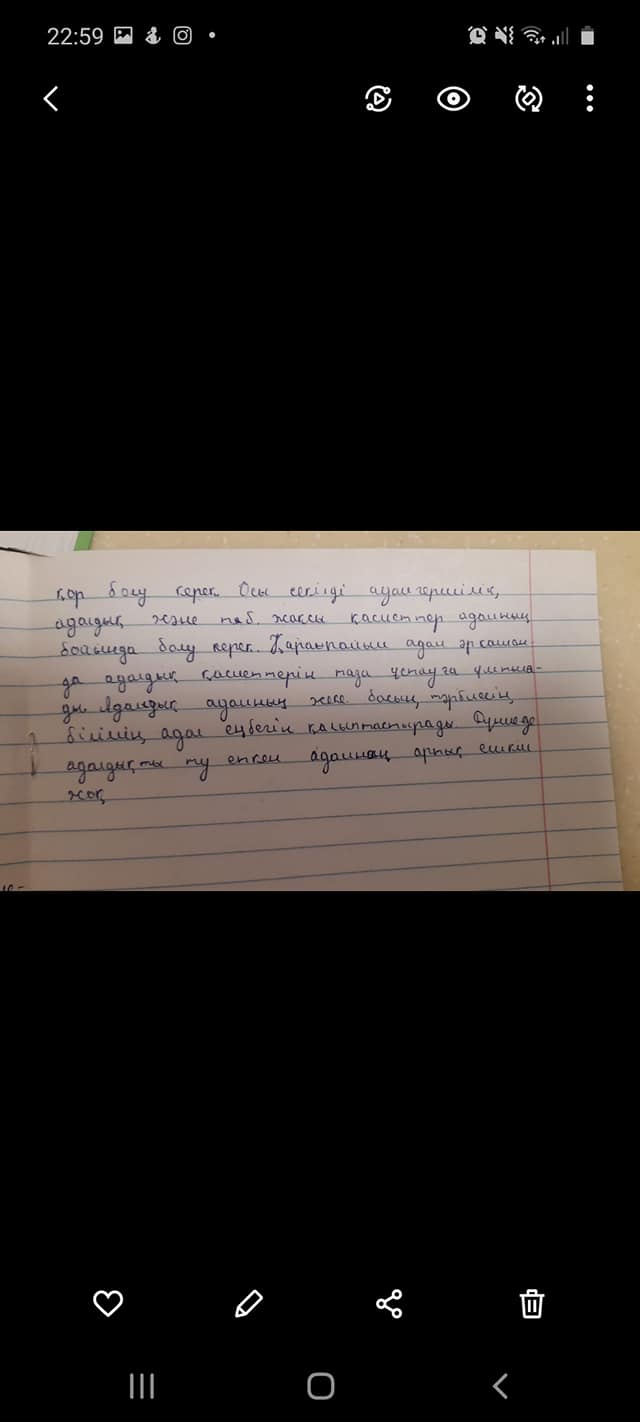 22:59
қор болу керек Осы секілді адамгершілік,
адалдық және т.б. жақсы қасиеттер адамның
бойында болу керек. Қарапайым адам әрқашан
да адалдық қасиеттерін таза ұстауға ұмтыла-
ды. Адалдық адамның жеке басын, тәрбиесін,
білімін, адал еңбегін қалыптастырады. Дүниеде
адалдықты ту еткен адамнан артық ешкім
жоқ